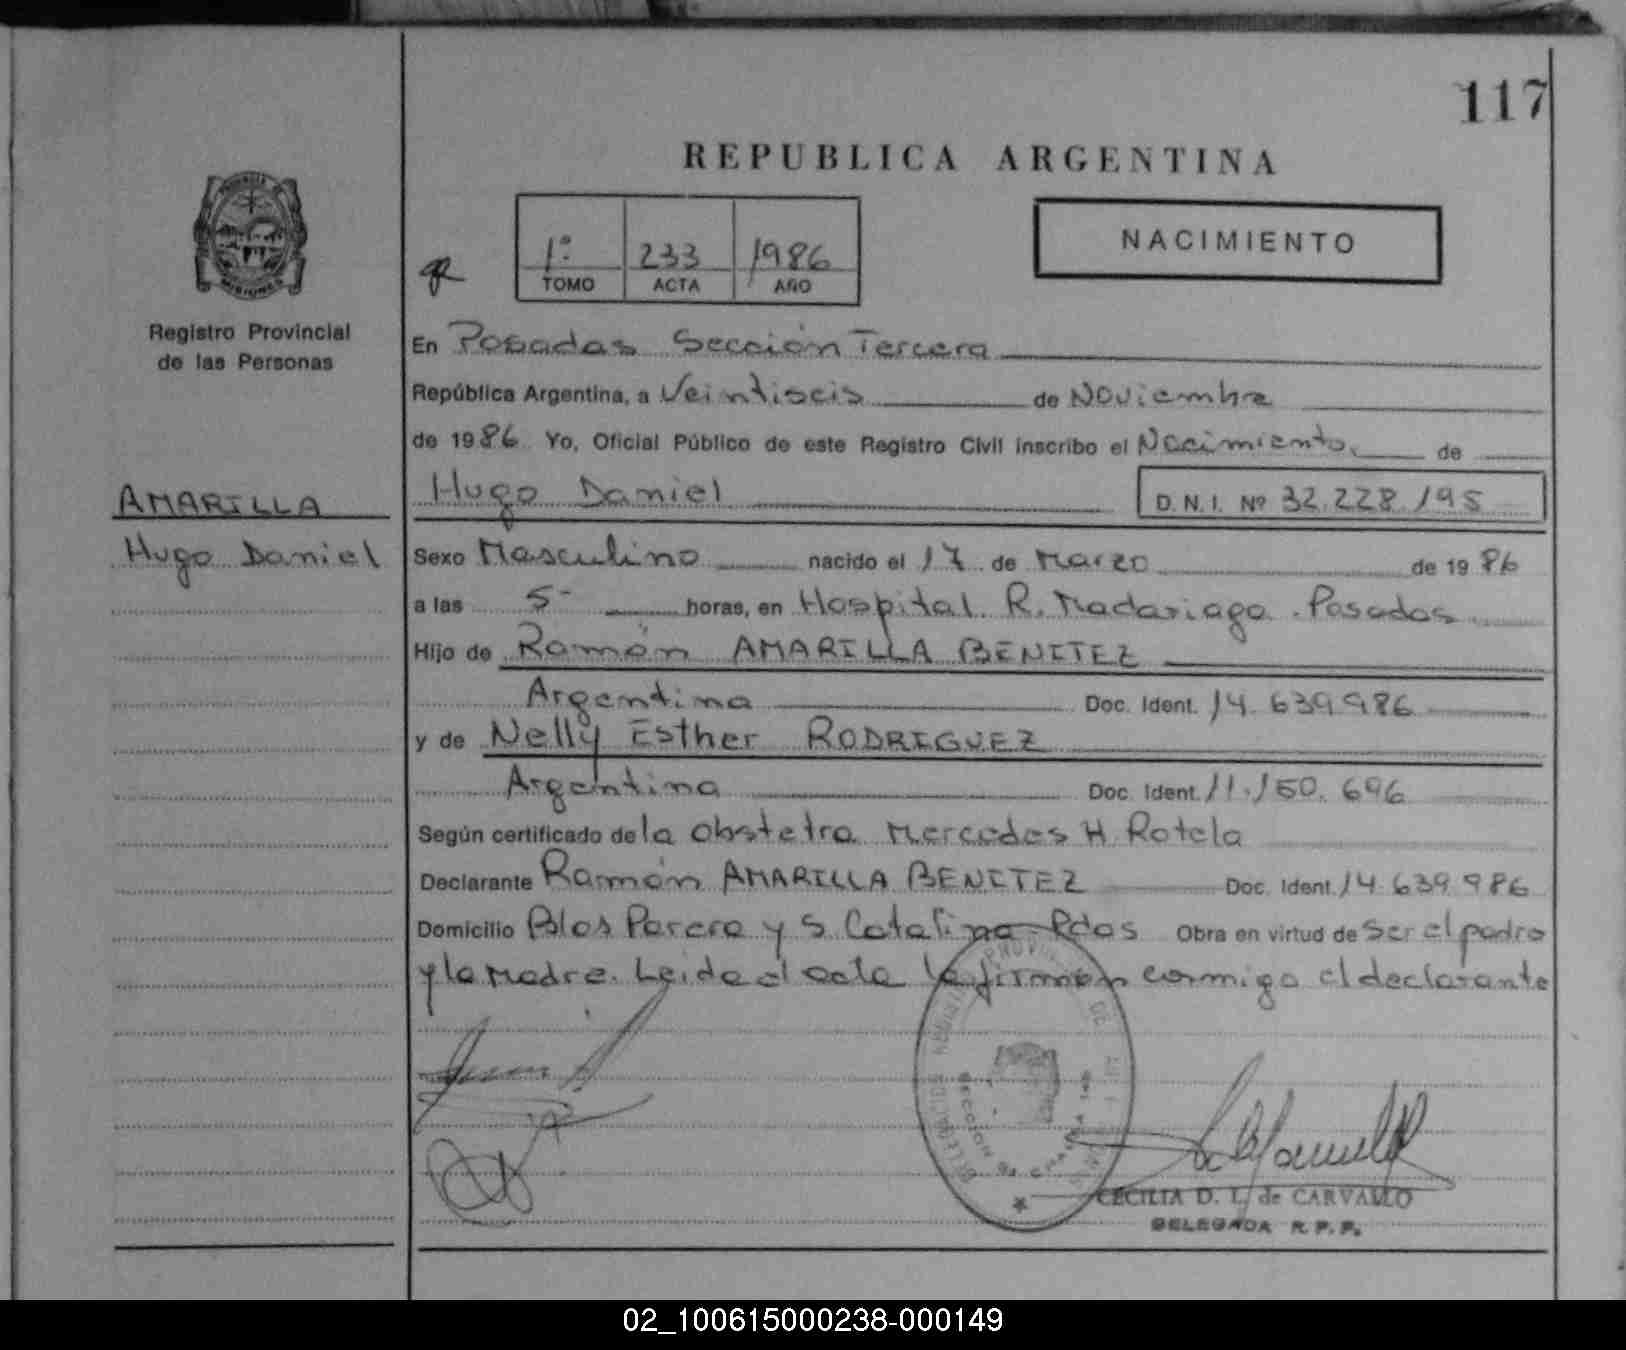 117
REPUBLICA ARGENTINA
1º 233 1986
TOMO ACTA AÑO
NACIMIENTO
MISIONES
Registro Provincial
de las Personas
AMARILLA
Hugo Daniel
En Posadas Sección Tercera
República Argentina, a Veintiseis de Noviembre
de 1986 Yo, Oficial Público de este Registro Civil inscribo el Nacimiento de
Hugo Daniel D.N.I. Nº 32.228.195
Sexo Masculino nacido el 17 de Marzo de 1986
a las 5- horas, en Hospital R. Madariaga. Posadas
Hijo de Ramón AMARILLA BENITEZ
Argentina Doc. Ident. 14.639986
y de Nelly Esther RODRIGUEZ
Argentina Doc. Ident. 11.150.696
Según certificado de la obstetra Mercedes H. Rotela
Declarante Ramón AMARILLA BENITEZ Doc. Ident. 14.639.986
Domicilio Blas Parera y S. Catalina - Pdas Obra en virtud de ser el padre
y la Madre. Leida el acta la firman conmigo el declarante
CECILIA D. L. de CARVALLO
DELEGADA R.P.P.
02_100615000238-000149